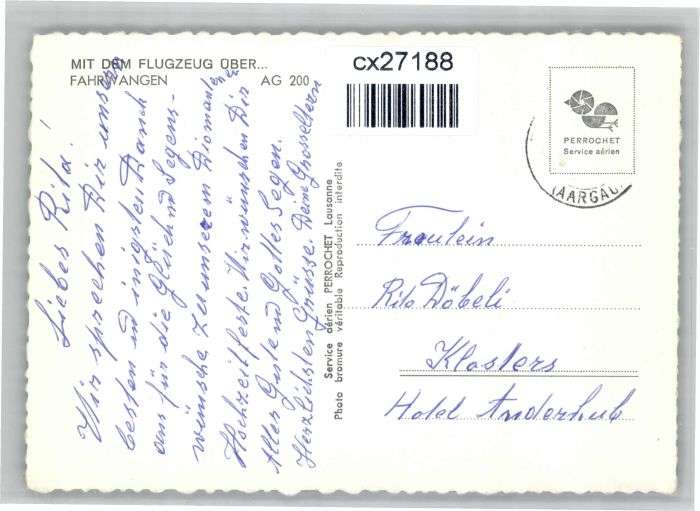 MIT DEM FLUGZEUG ÜBER...
FAHRWANGEN AG 200
cx27188
PERROCHET
Service aérien
(AARGAU)
Liebes Rita!
Wir sprechen Dir unsern
besten und inigsten Danch
aus für die Glück und Segens-
wünsche zu unserem Diomantenen
Hochzeitfeste. Wir wünschen Dir
Alles Gute und Gottes Segen.
Herzlichsten Grüsse. Deine Grosseltern
Service aérien PERROCHET Lausanne
Photo bromure véritable Reproduction interdite
Fräulein
Rita Döbeli
Klosters
Hotel Anderhub